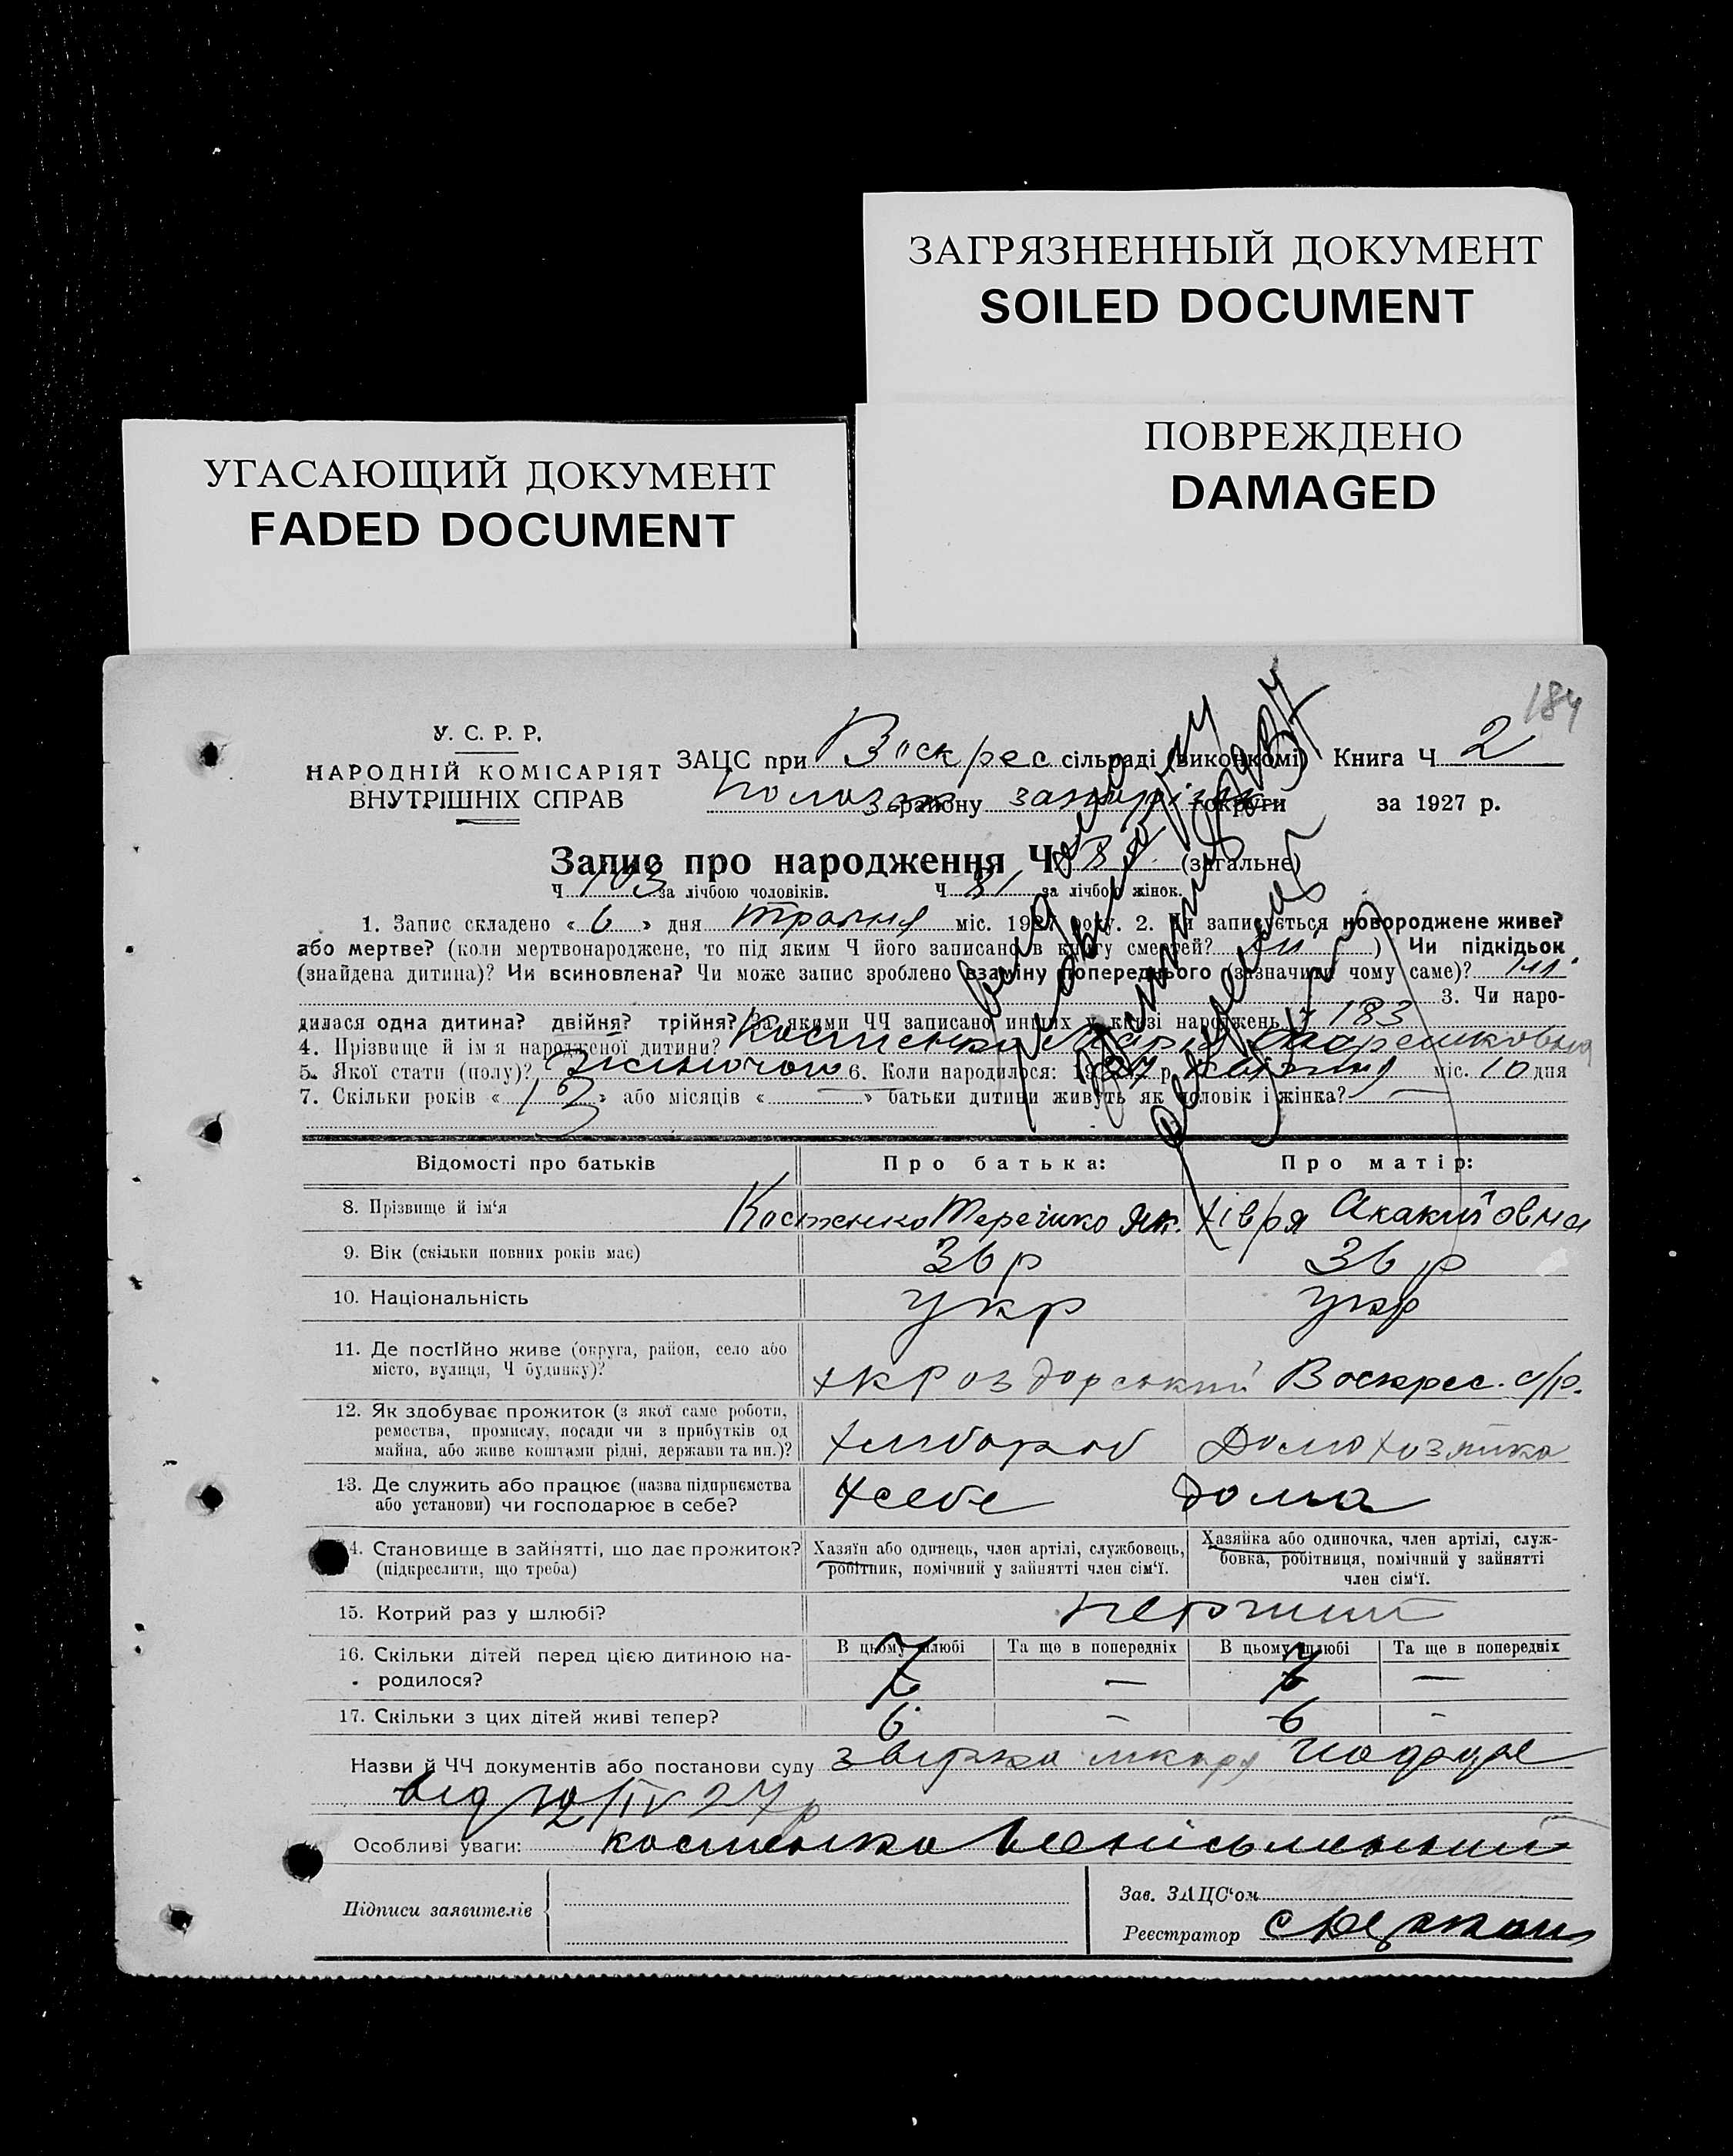 ЗАГРЯЗНЕННЫЙ ДОКУМЕНТ
SOILED DOCUMENT
ПОВРЕЖДЕНО
DAMAGED
УГАСАЮЩИЙ ДОКУМЕНТ
FADED DOCUMENT
184
У. С. Р. Р.
НАРОДНІЙ КОМІСАРІЯТ
ВНУТРІШНІХ СПРАВ
ЗАЦС при Воскрес сільраді (виконкомі) Книга Ч 2
району округи за 1927 р.
Запис про народження Ч (загальне)
Ч 103 за лічбою чоловіків. Ч 81 за лічбою жінок.
1. Запис складено « 6 » дня травня міс. 1927 року. 2. Чи записується новороджене живе?
або мертве? (коли мертвонароджене, то під яким Ч його записано в книгу смертей? ) Чи підкідьок
(знайдена дитина)? Чи всиновлена? Чи може запис зроблено взаміну попереднього (зазначити чому саме)?
3. Чи наро-
дилася одна дитина? двійня? трійня? За якими ЧЧ записано инших у книзі народжень 183
4. Прізвище й ім я народженої дитини? Костенко Марія
5. Якої статі (полу)? жіночого 6. Коли народилося: 1927 р. квітня міс. 10 дня
7. Скільки років « 13 » або місяців « — » батьки дитини живуть як чоловік і жінка? —
Відомості про батьків Про батька: Про матір:
8. Прізвище й ім'я Костенко Терешко Як. Хівря Акакиївна
9. Вік (скільки повних років має) 36 р 36 р
10. Національність укр укр
11. Де постійно живе (округа, район, село або
місто, вулиця, Ч будинку)? Воскрес. с/р.
12. Як здобуває прожиток (з якої саме роботи,
ремества, промислу, посади чи з прибутків од
майна, або живе коштами рідні, держави та ин.)? хлибороб Домохозяйка
13. Де служить або працює (назва підприємства
або установи) чи господарює в себе? У себе дома
14. Становище в зайнятті, що дає прожиток?
(підкреслити, що треба)
Хазяїн або одинець, член артілі, службовець,
робітник, помічний у зайнятті член сім'ї.
Хазяйка або одиночка, член артілі, служ-
бовка, робітниця, помічний у зайнятті
член сім'ї.
15. Котрий раз у шлюбі? перший
16. Скільки дітей перед цією дитиною на-
родилося?
В цьому шлюбі Та ще в попередніх В цьому шлюбі Та ще в попередніх
7 — 7 —
17. Скільки з цих дітей живі тепер? 6 – 6 –
Назви й ЧЧ документів або постанови суду
від 12/IV 27 р
Особливі уваги: Костенко неписьменний
Підписи заявителів
Зав. ЗАЦС'ом
Реєстратор